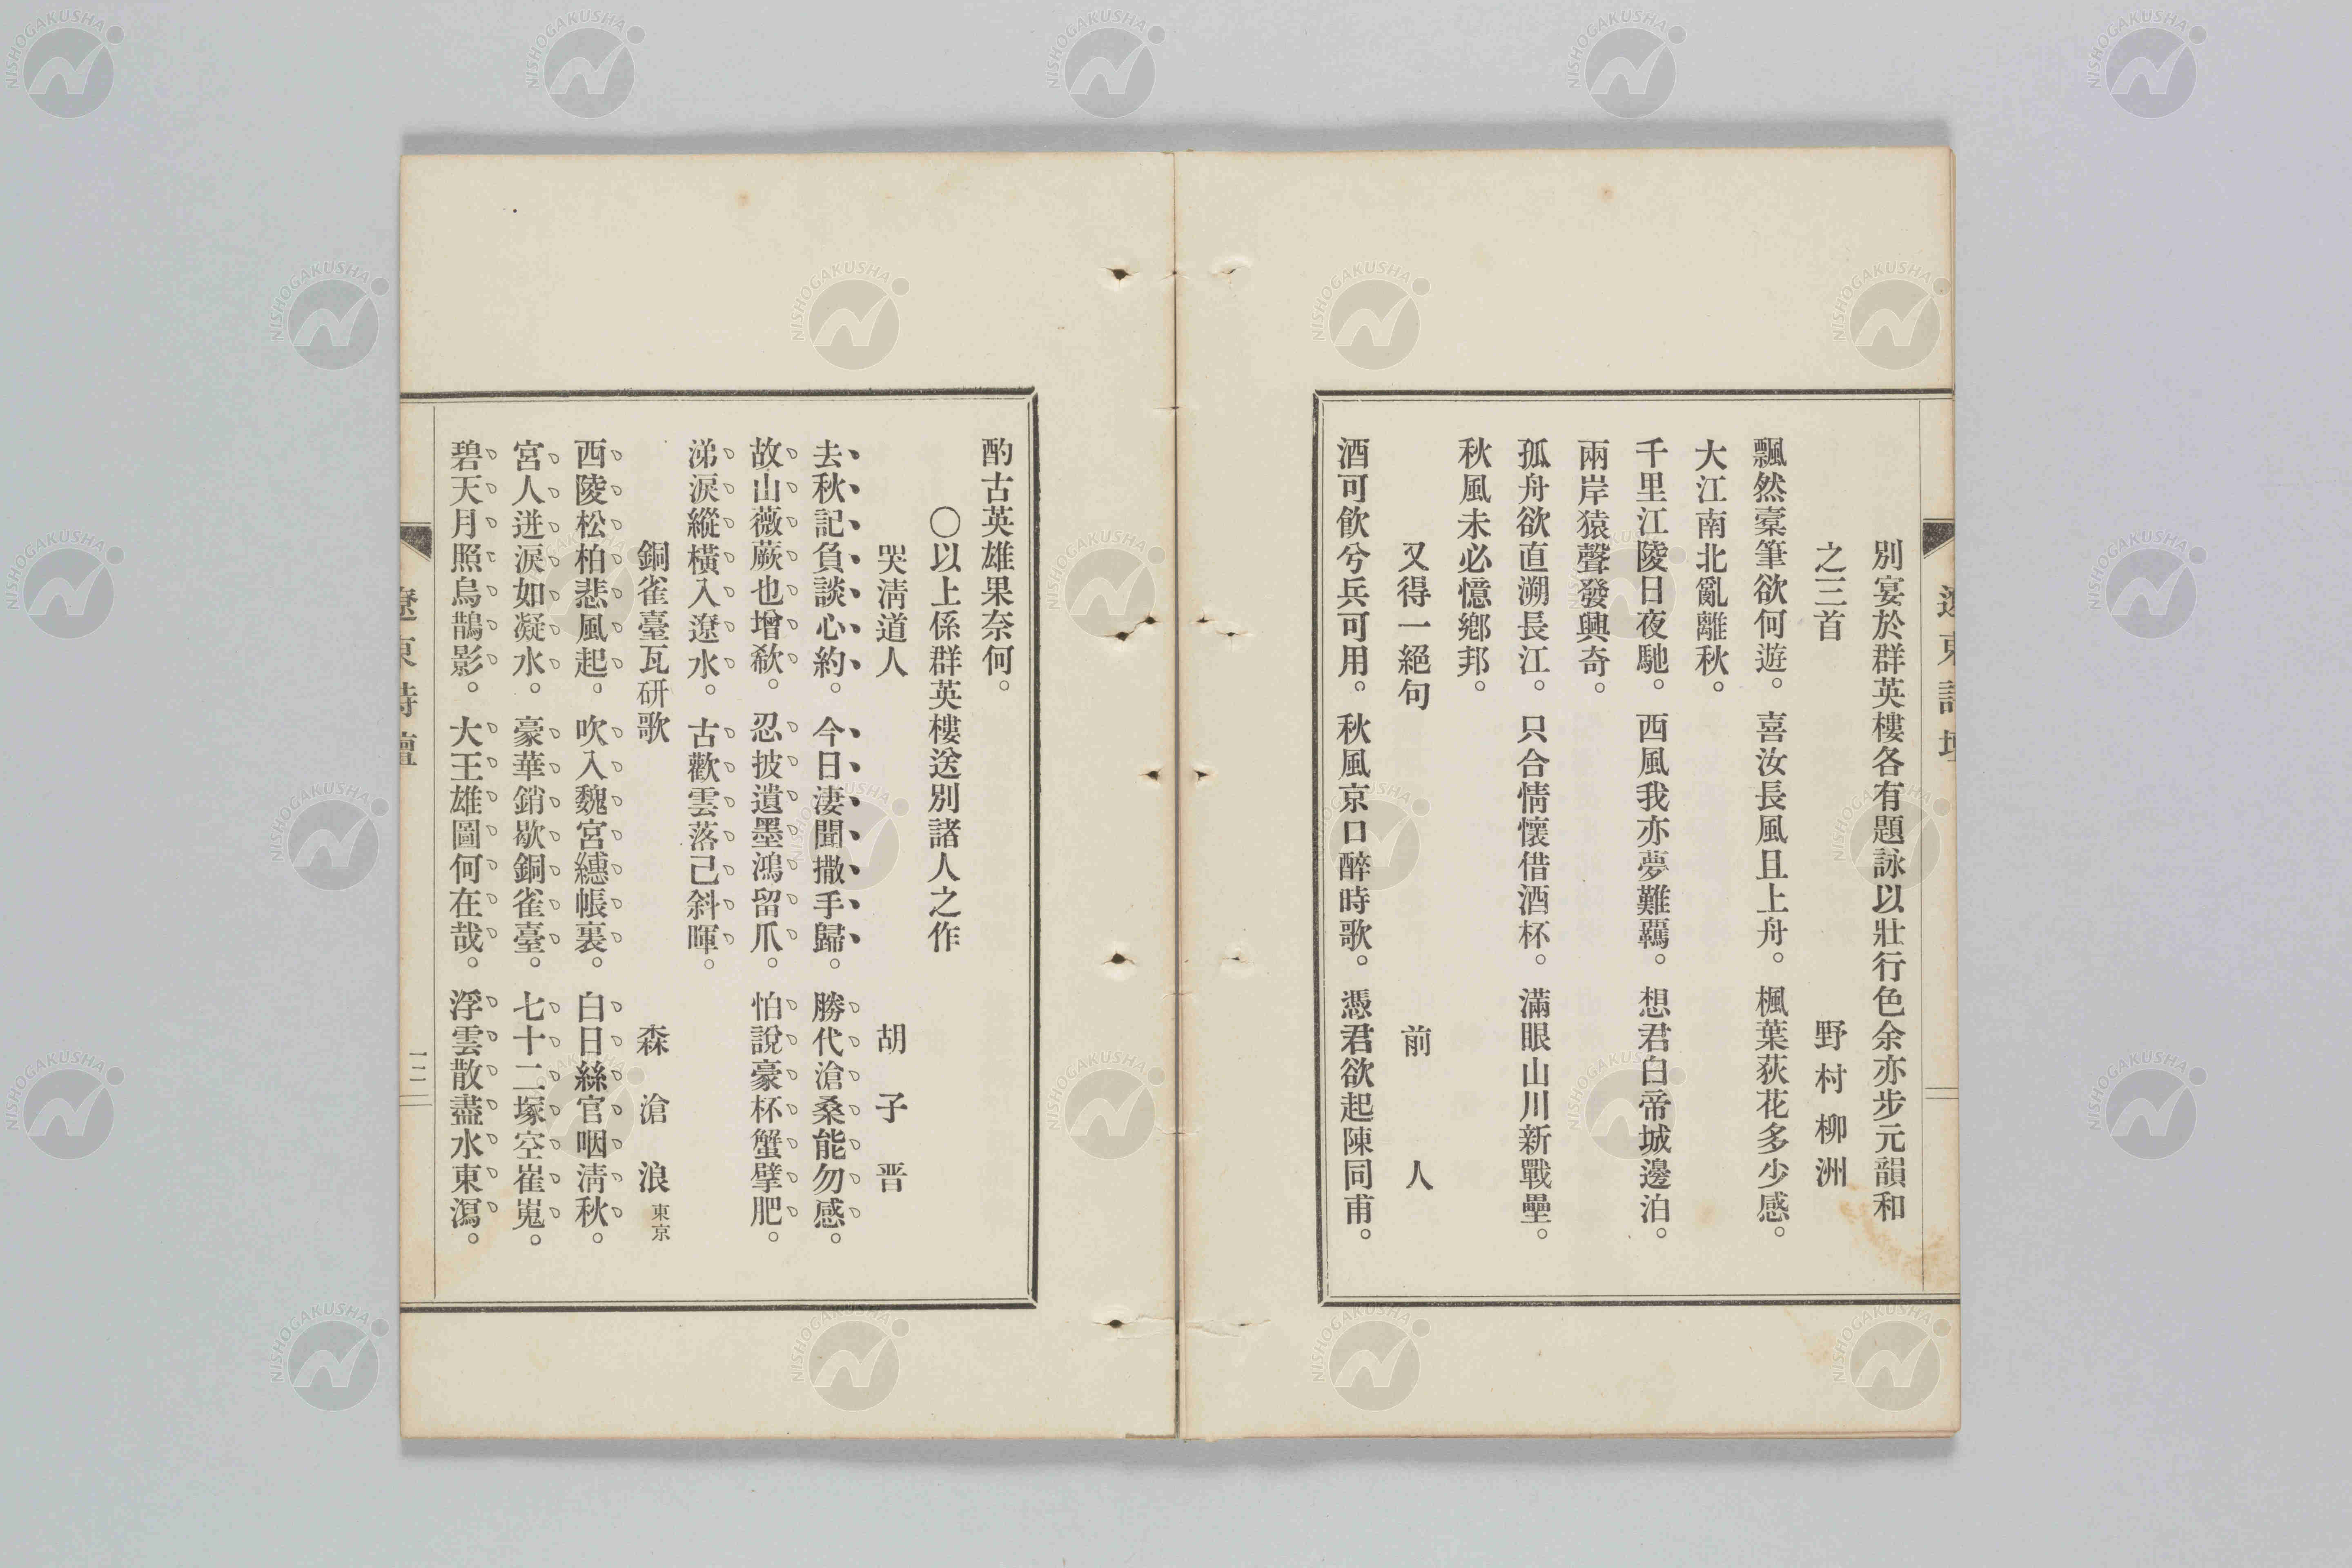 遼東詩壇
別宴於群英樓各有題詠以壯行色余亦步元韻和
之三首　野村柳洲
飄然槖筆欲何遊。喜汝長風且上舟。楓葉荻花多少感。
大江南北亂離秋。
千里江陵日夜馳。西風我亦夢難羈。想君白帝城邊泊。
兩岸猿聲發興奇。
孤舟欲直溯長江。只合情懷借酒杯。滿眼山川新戰壘。
秋風未必憶鄉邦。
又得一絕句　前人
酒可飮兮兵可用。秋風京口醉時歌。憑君欲起陳同甫。
酌古英雄果奈何。
○以上係群英樓送別諸人之作
哭淸道人　胡子晋
去秋記負談心約。今日淒聞撒手歸。勝代滄桑能勿感。
故山薇蕨也增欷。忍披遺墨鴻留爪。怕說豪杯蟹擘肥。
涕淚縱橫入遼水。古歡雲落己斜暉。
銅雀臺瓦研歌　森滄浪 東京
西陵松柏悲風起。吹入魏宮繐帳裏。白日絲官咽淸秋。
宮人迸淚如凝水。豪華銷歇銅雀臺。七十二塚空崔嵬。
碧天月照烏鵲影。大王雄圖何在哉。浮雲散盡水東瀉。
遼東詩壇
一二
NISHOGAKUSHA